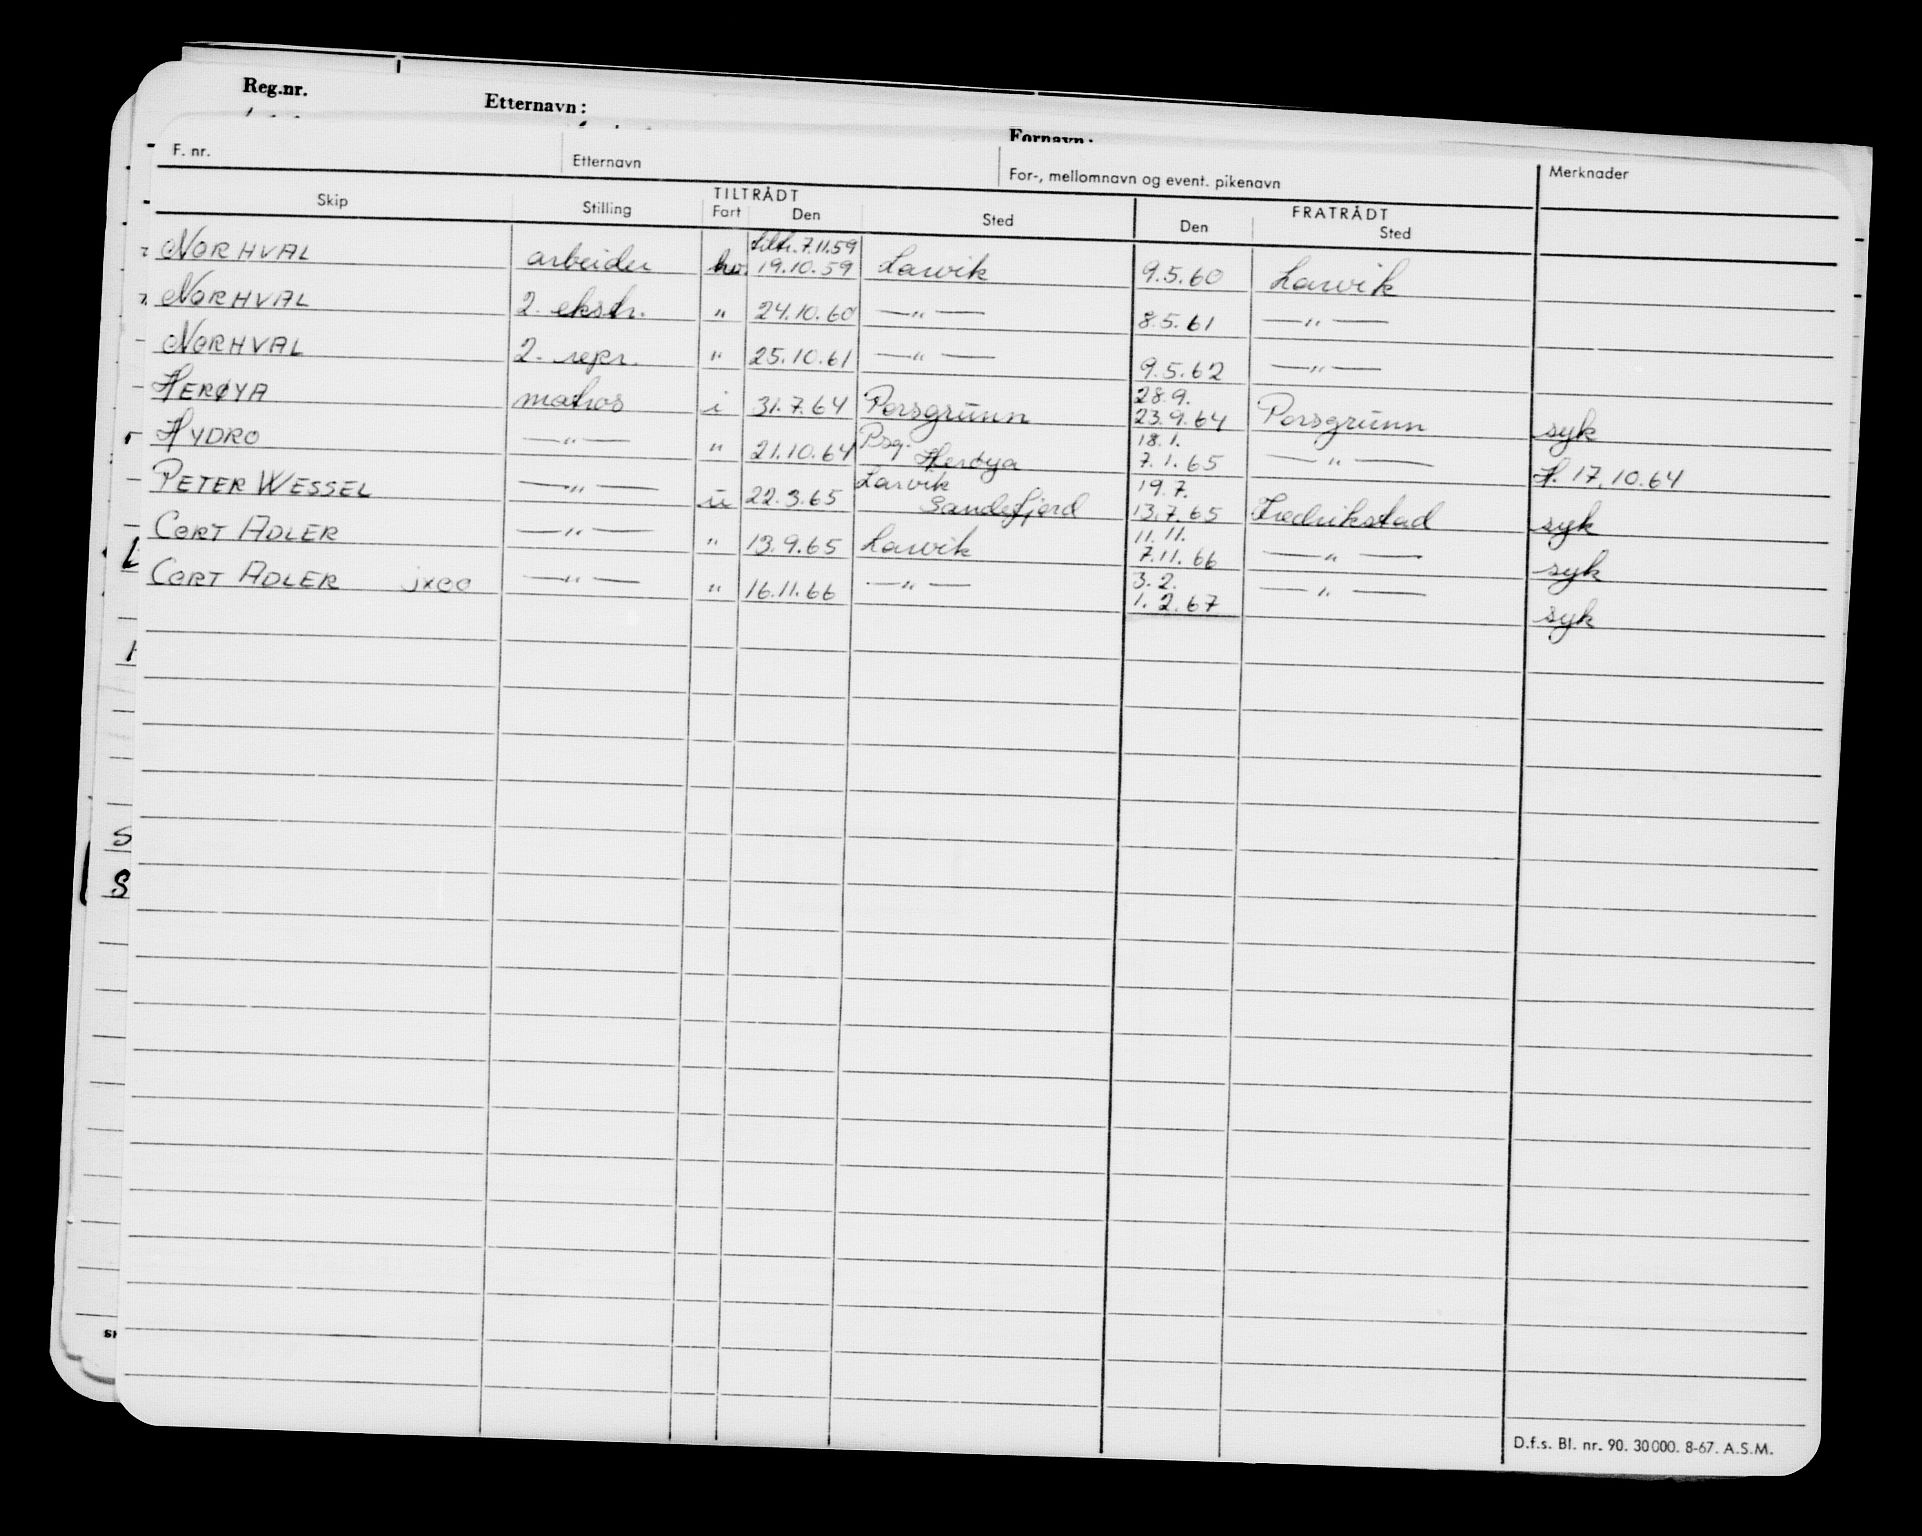 Reg.nr. Etternavn: Fornavn:
F. nr. Etternavn For-, mellomnavn og event. pikenavn Merknader
TILTRÅDT FRATRÅDT
Skip Stilling Fart Den Sted Den Sted
tiltr. 7.11.59
NORHVAL arbeider hv. 19.10.59 Larvik 9.5.60 Larvik
NORHVAL 2. ekstr. " 24.10.60 —"— 8.5.61 —"—
NORHVAL 2. repr. " 25.10.61 —"— 9.5.62 —"—
28.9.
HERØYA matros i 31.7.64 Porsgrunn 23.9.64 Porsgrunn syk
Psg. 18.1.
HYDRO —"— " 21.10.64 Herøya 7.1.65 —"— H. 17.10.64
Larvik 19.7.
PETER WESSEL —"— u 22.3.65 Sandefjord 13.7.65 Fredrikstad syk
11.11.
CORT ADLER —"— " 13.9.65 Larvik 7.11.66 —"— syk
3.2.
CORT ADLER —"— " 16.11.66 —"— 1.2.67 —"— syk
S
S
D.f.s. Bl. nr. 90. 30000. 8-67. A.S.M.